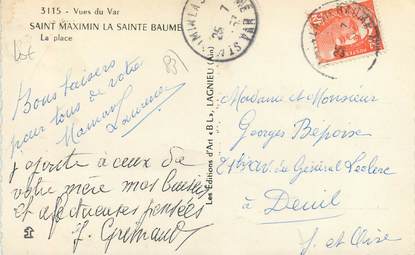 3115 - Vues du Var
SAINT MAXIMIN LA SAINTE BAUME
La place
Bons baisers
pour tous de votre
Maman
J'ajoute à ceux de
votre mère mes
et affectueuses pensées
J. Grimaud
Les Editions d'Art « B.L », LAGNIEU (Ain)
Madame et Monsieur
Georges
du Général Leclerc
à Deuil
S. et Oise